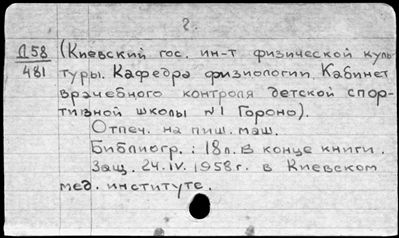 2.
Д58 (Киевский гос. ин-т физической куль
481 туры. Кафедра физиологии. Кабинет
врачебного контроля детской спор-
тивной школы №1 Гороно).
Отпеч. на пиш. маш.
Библиогр.: 18л. в конце книги.
Защ. 24.IV.1958г. в Киевском
мед. институте.